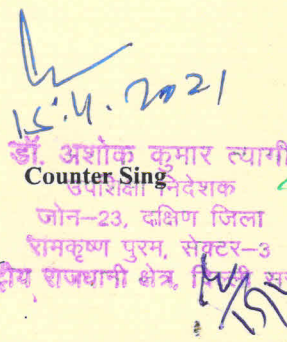 15.4.2021
डॉ. अशोक कुमार त्यागी
Counter Sing
उपशिक्षा निदेशक
जोन–23, दक्षिण जिला
रामकृष्ण पुरम, सेक्टर–3
राजधानी क्षेत्र,